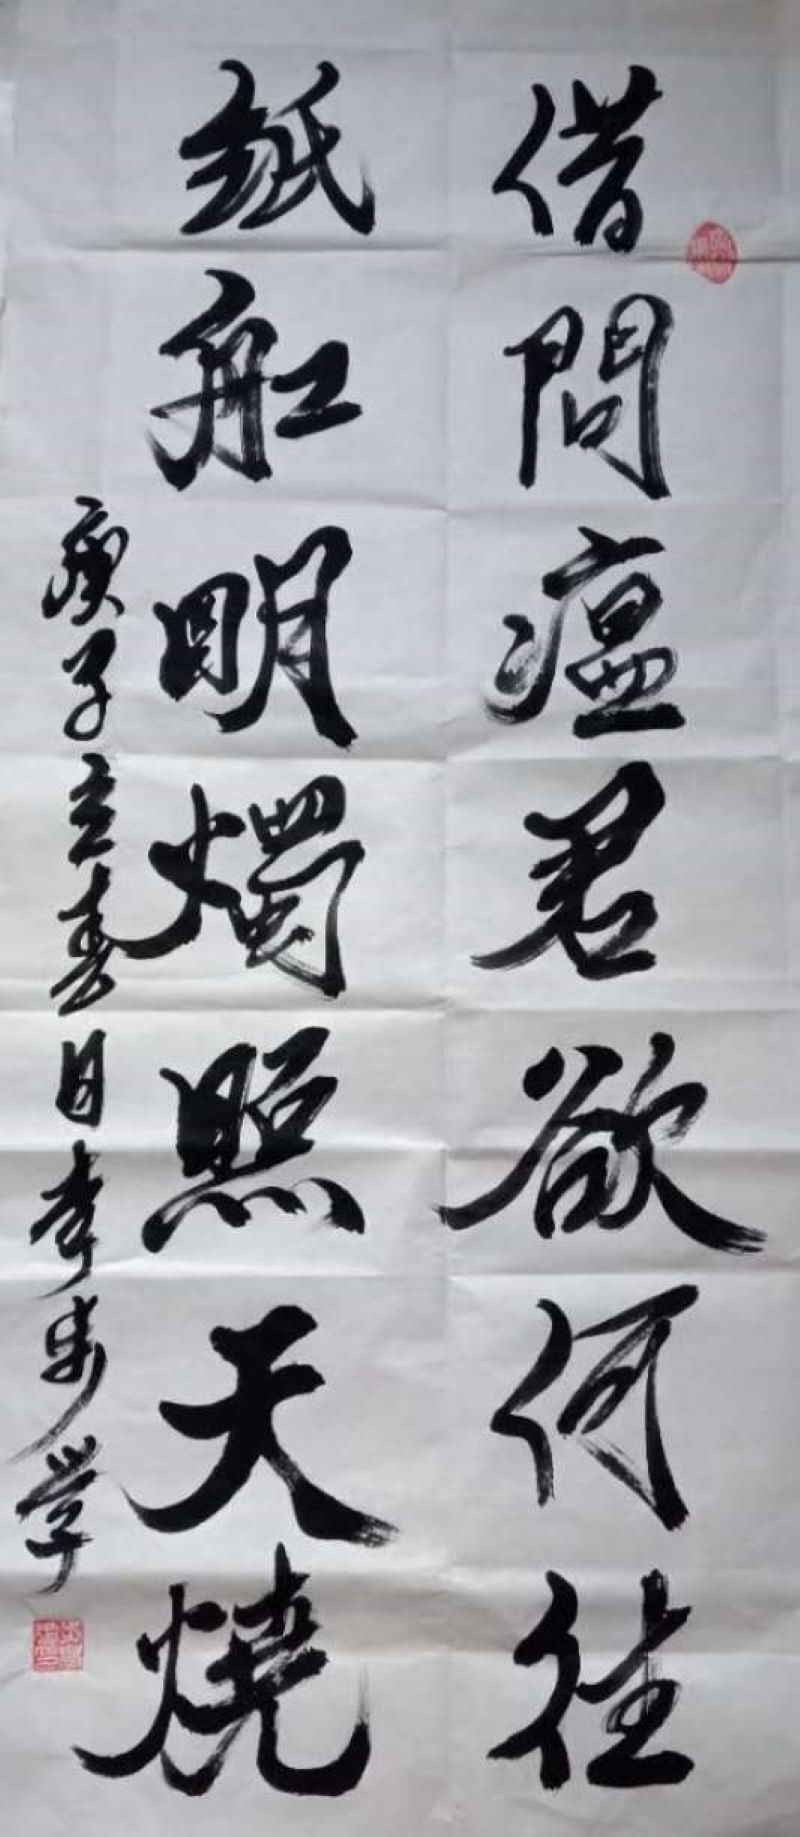 借問瘟君欲何往
紙船明燭照天燒
庚子立春日李步學